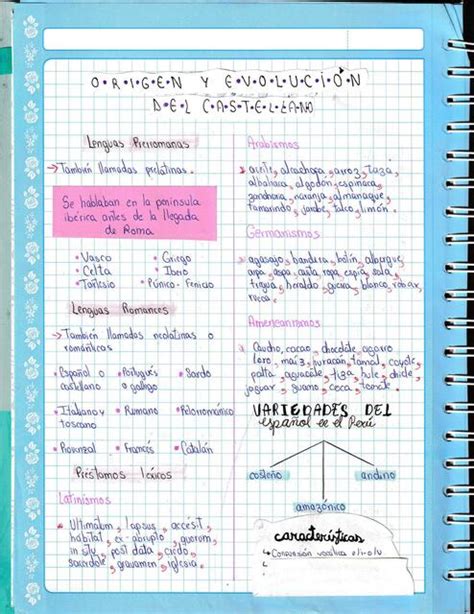 ORIGEN Y EVOLUCIÓN
DEL CASTELLANO
Lenguas Prerromanas
→ También llamadas prelatinas.
Se hablaban en la península
ibérica antes de la llegada
de Roma
• Vasco • Griego
• Celta • Ibero
• Tartesio • Púnico-Fenicio
Lenguas Romances
→ También llamadas neolatinas o
románticas
• Español o castellano • Portugués o gallego • Sardo
• Italiano y toscano • Rumano • Retorrománico
• Provenzal • Francés • Catalán
Préstamos léxicos
Latinismos
Ultimátum, lapsus, accésit,
habitat, ex-abrupto, quorum,
in situ, post data, credo,
sacerdote, gravamen, iglesia.
Arabismos
aceite, alcachofa, arroz, taza,
albahaca, algodón, espinaca,
zanahoria, naranja, almanaque,
tamarindo, jarabe, talco, limón.
Germanismos
agasajo, bandera, botín, albergue,
arpa, aspa, ropa, espía, sala,
tregua, heraldo, guerra, blanco, robar,
rueca.
Americanismos
Caucho, cacao, chocolate,
loro, maíz, huracán, tamal, coyote,
palta, aguacate, tiza, hule, chicle,
jaguar, guano, coca, tomate.
VARIEDADES DEL
español en el Perú
costeño andino
amazónico
características